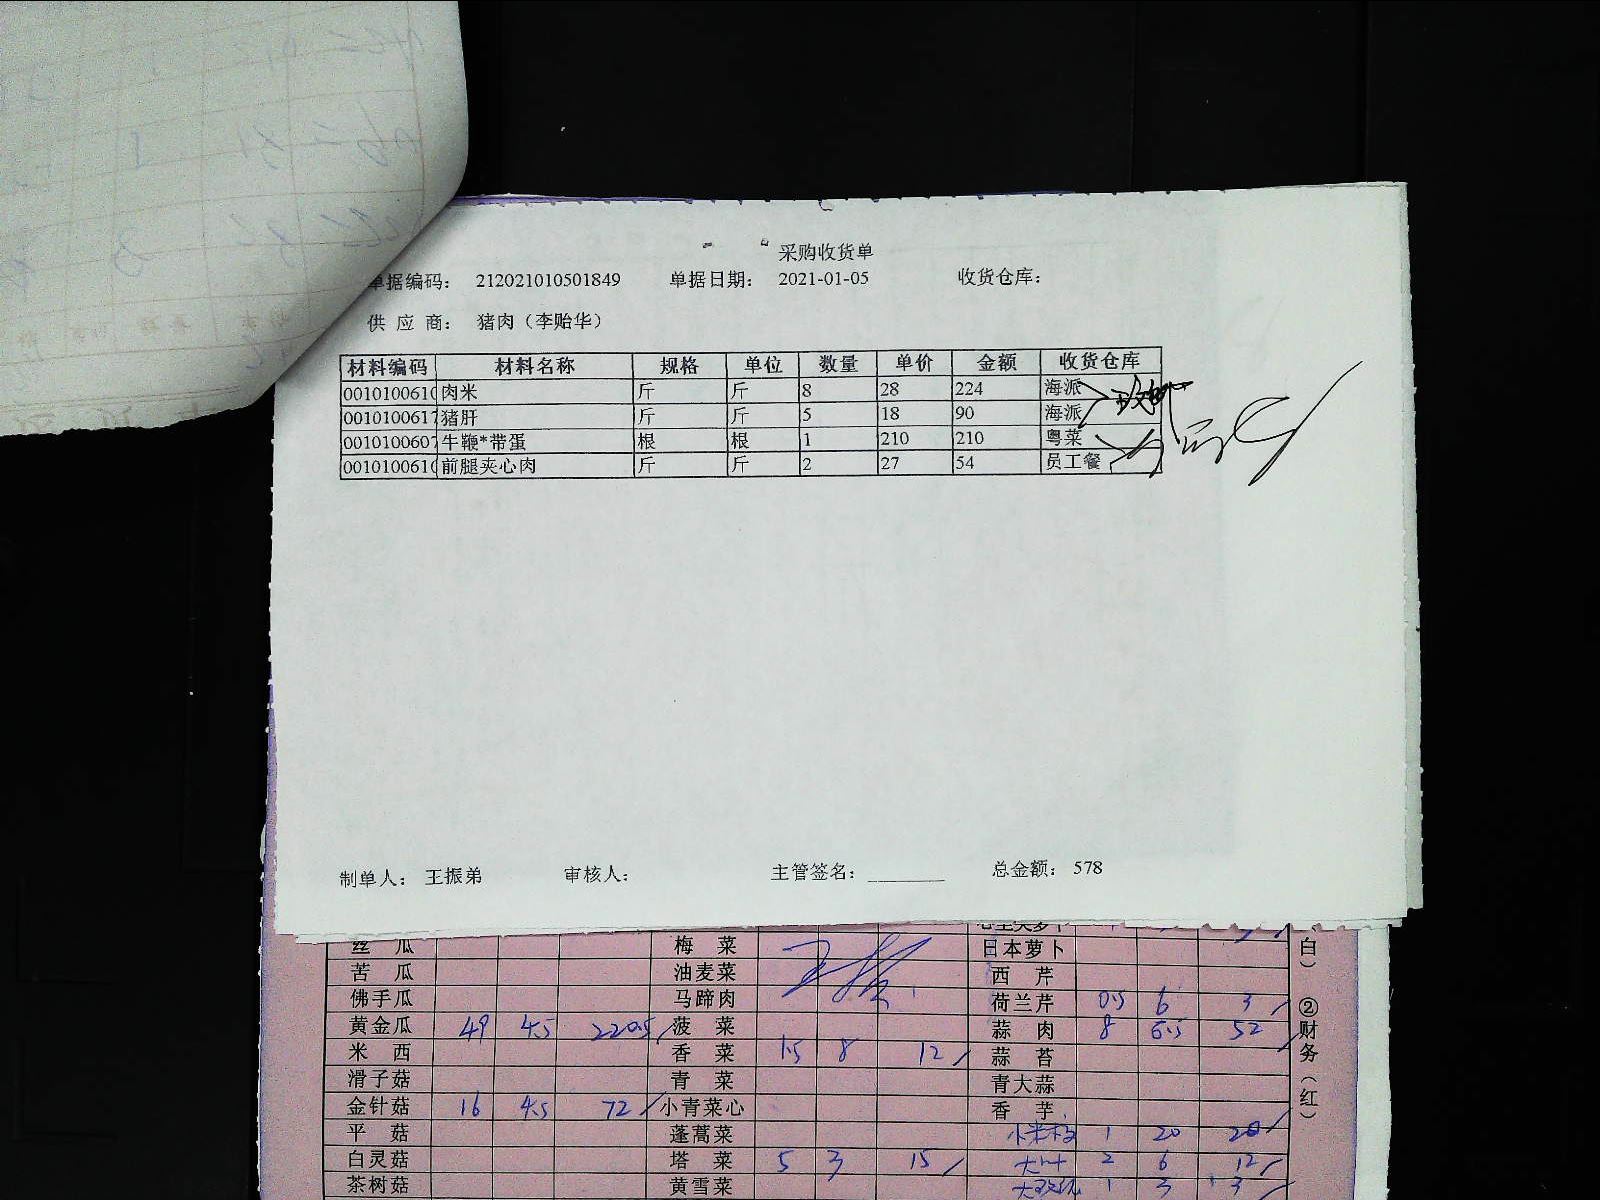 采购收货单
单据编码： 212021010501849 单据日期： 2021-01-05 收货仓库：
供 应 商： 猪肉（李贻华）
材料编码 材料名称 规格 单位 数量 单价 金额 收货仓库
0010100610 肉米 斤 斤 8 28 224 海派
0010100617 猪肝 斤 斤 5 18 90 海派
0010100607 牛鞭*带蛋 根 根 1 210 210 粤菜
0010100610 前腿夹心肉 斤 斤 2 27 54 员工餐
制单人： 王振弟 审核人： 主管签名：________ 总金额： 578
丝 瓜 梅 菜 日本萝卜
苦 瓜 油麦菜 西 芹
佛手瓜 马蹄肉 荷兰芹 0.5 6 3
黄金瓜 49 4.5 220.5 菠 菜 蒜 肉 8 6.5 52
米 西 香 菜 1.5 8 12 蒜 苔
滑子菇 青 菜 青大蒜
金针菇 16 4.5 72 小青菜心 香 芋
平 菇 蓬蒿菜 1 20 20
白灵菇 塔 菜 5 3 15 大叶 2 6 12
茶树菇 黄雪菜 1 3 3
白） ②财务（红）